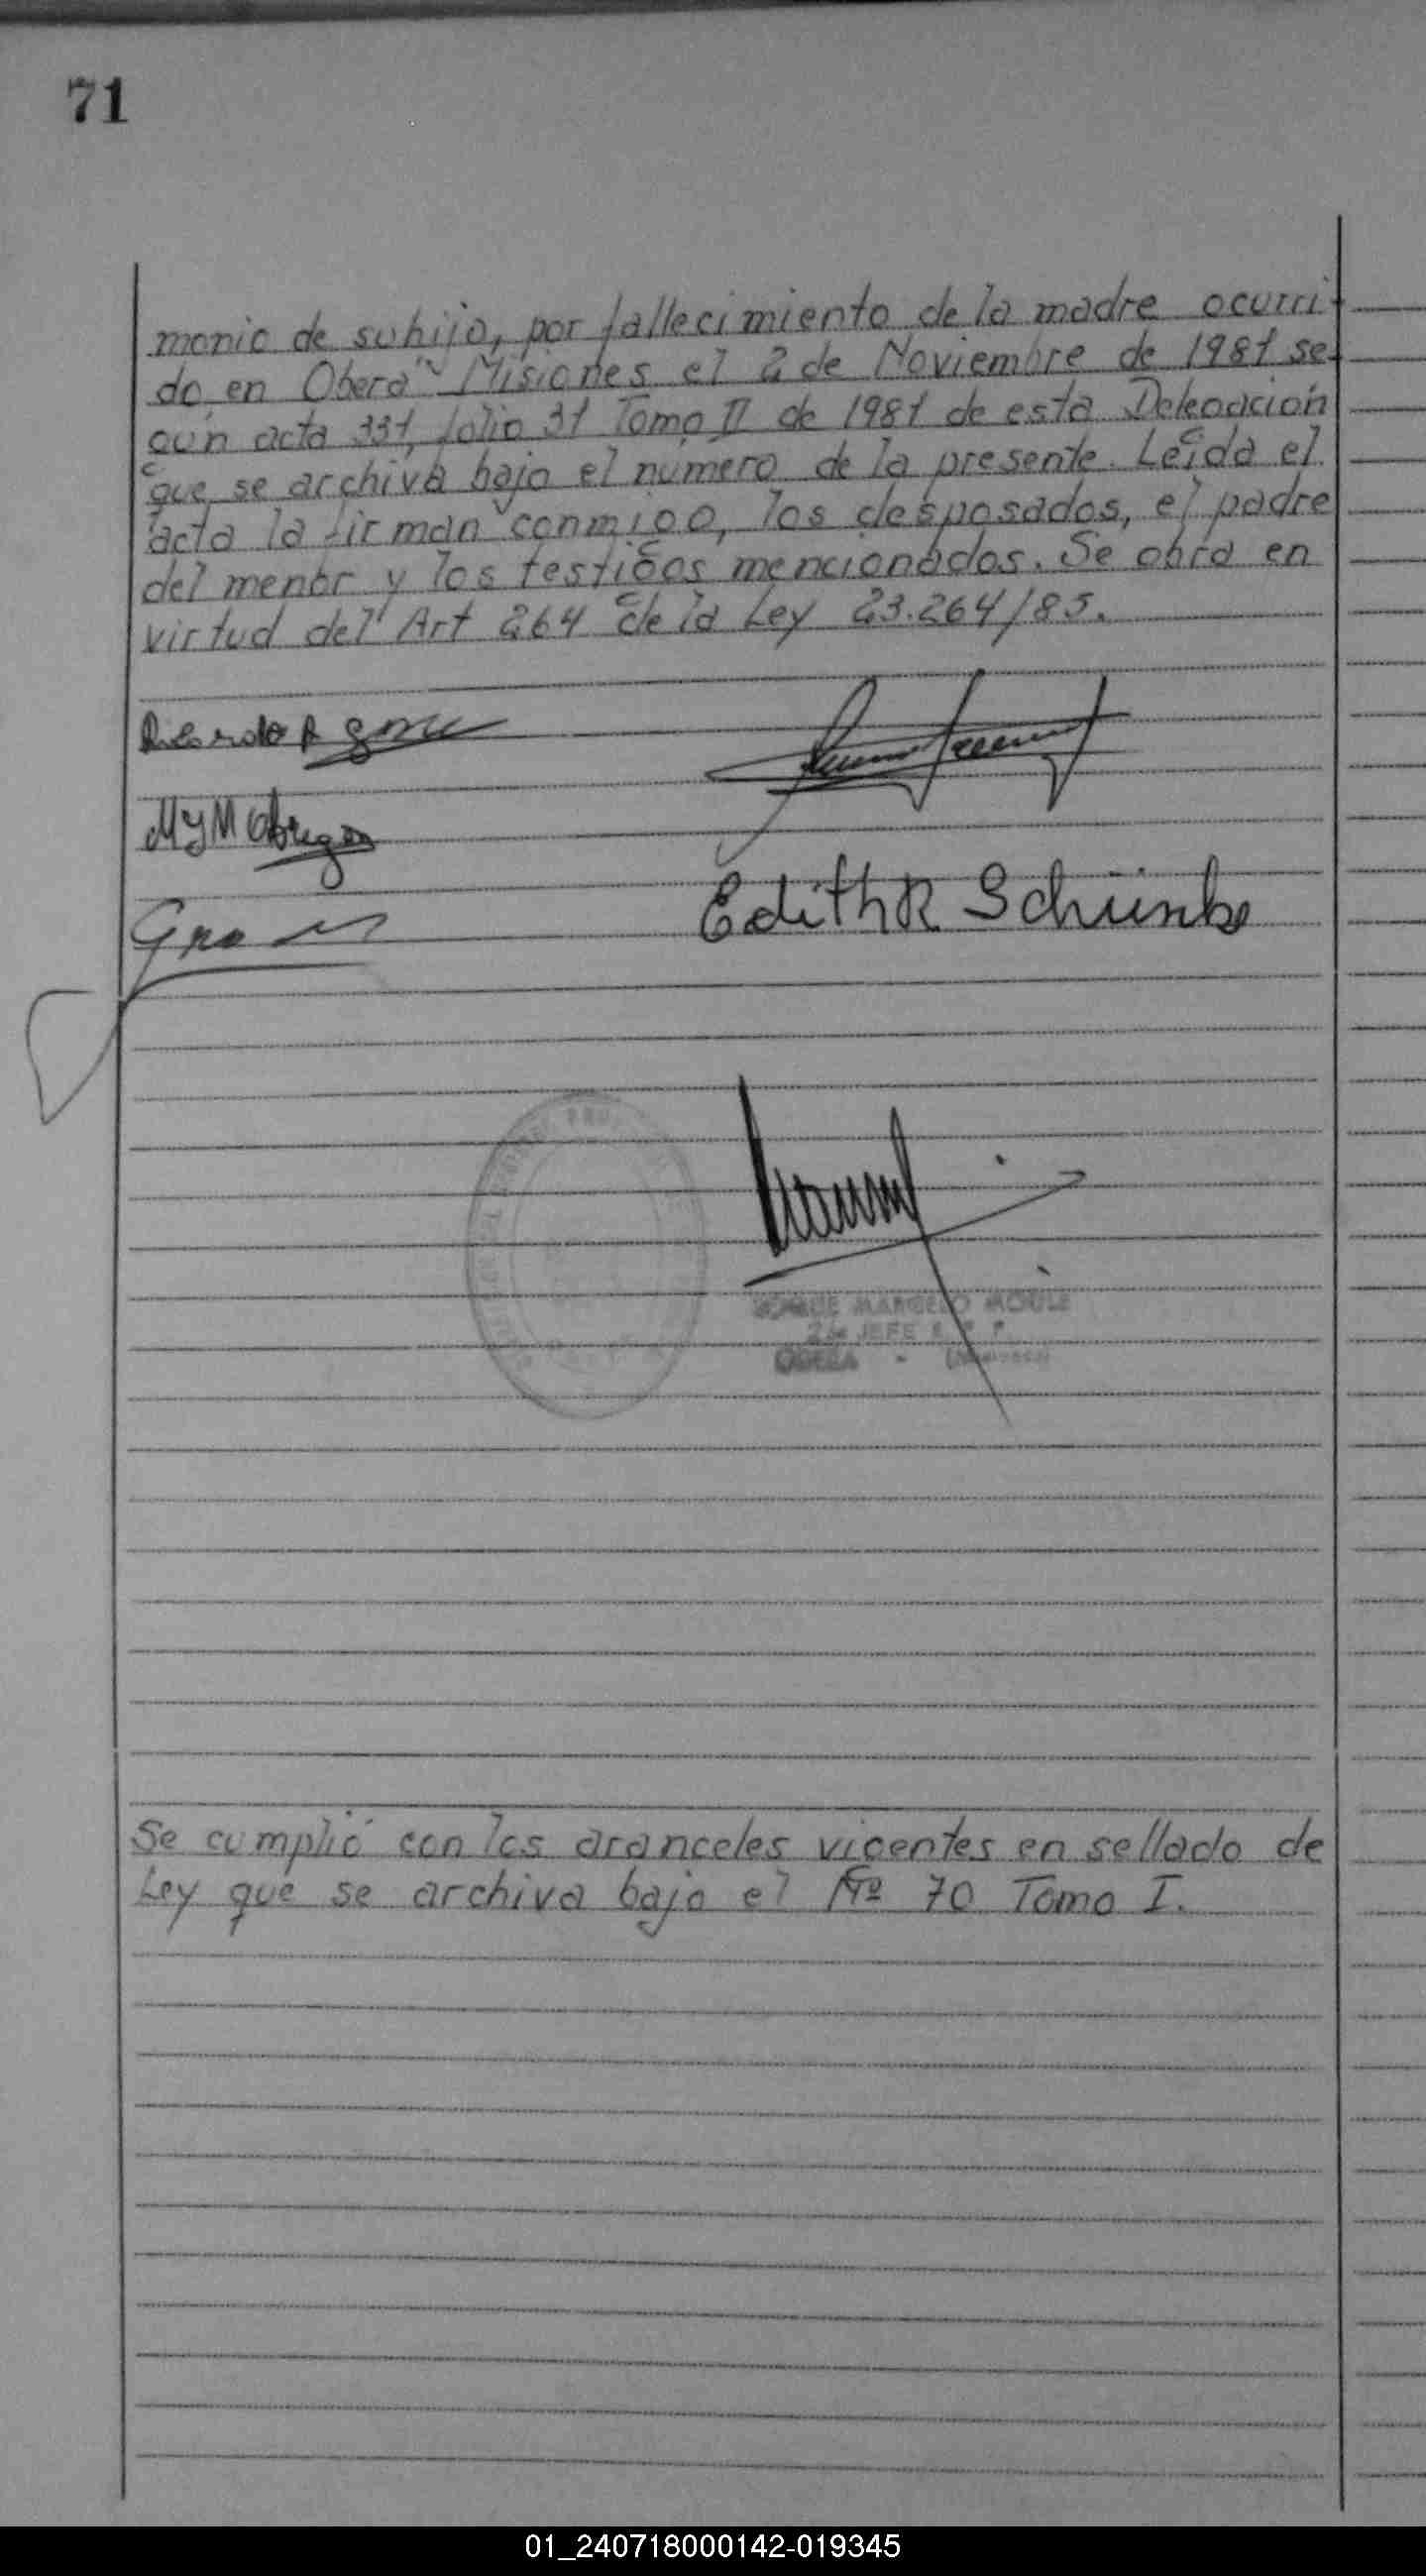 71
monio de su hijo, por fallecimiento de la madre ocurri-
do, en Oberá Misiones el 2 de Noviembre de 1981 se-
gún acta 331, folio 31 Tomo II de 1981 de esta Delegación
que se archiva bajo el número de la presente. Leída el
acta la firman conmigo, los desposados, el padre
del menor y los testigos mencionados. Se obra en
virtud del Art 264 de la Ley 23.264/85.
Ricardo A
M y M Obregon
Edith R Schünke
ROQUE MARCELO
JEFE
OBERA - (Misiones)
Se cumplió con los aranceles vigentes en sellado de
Ley que se archiva bajo el Nº 70 Tomo I.
01_240718000142-019345